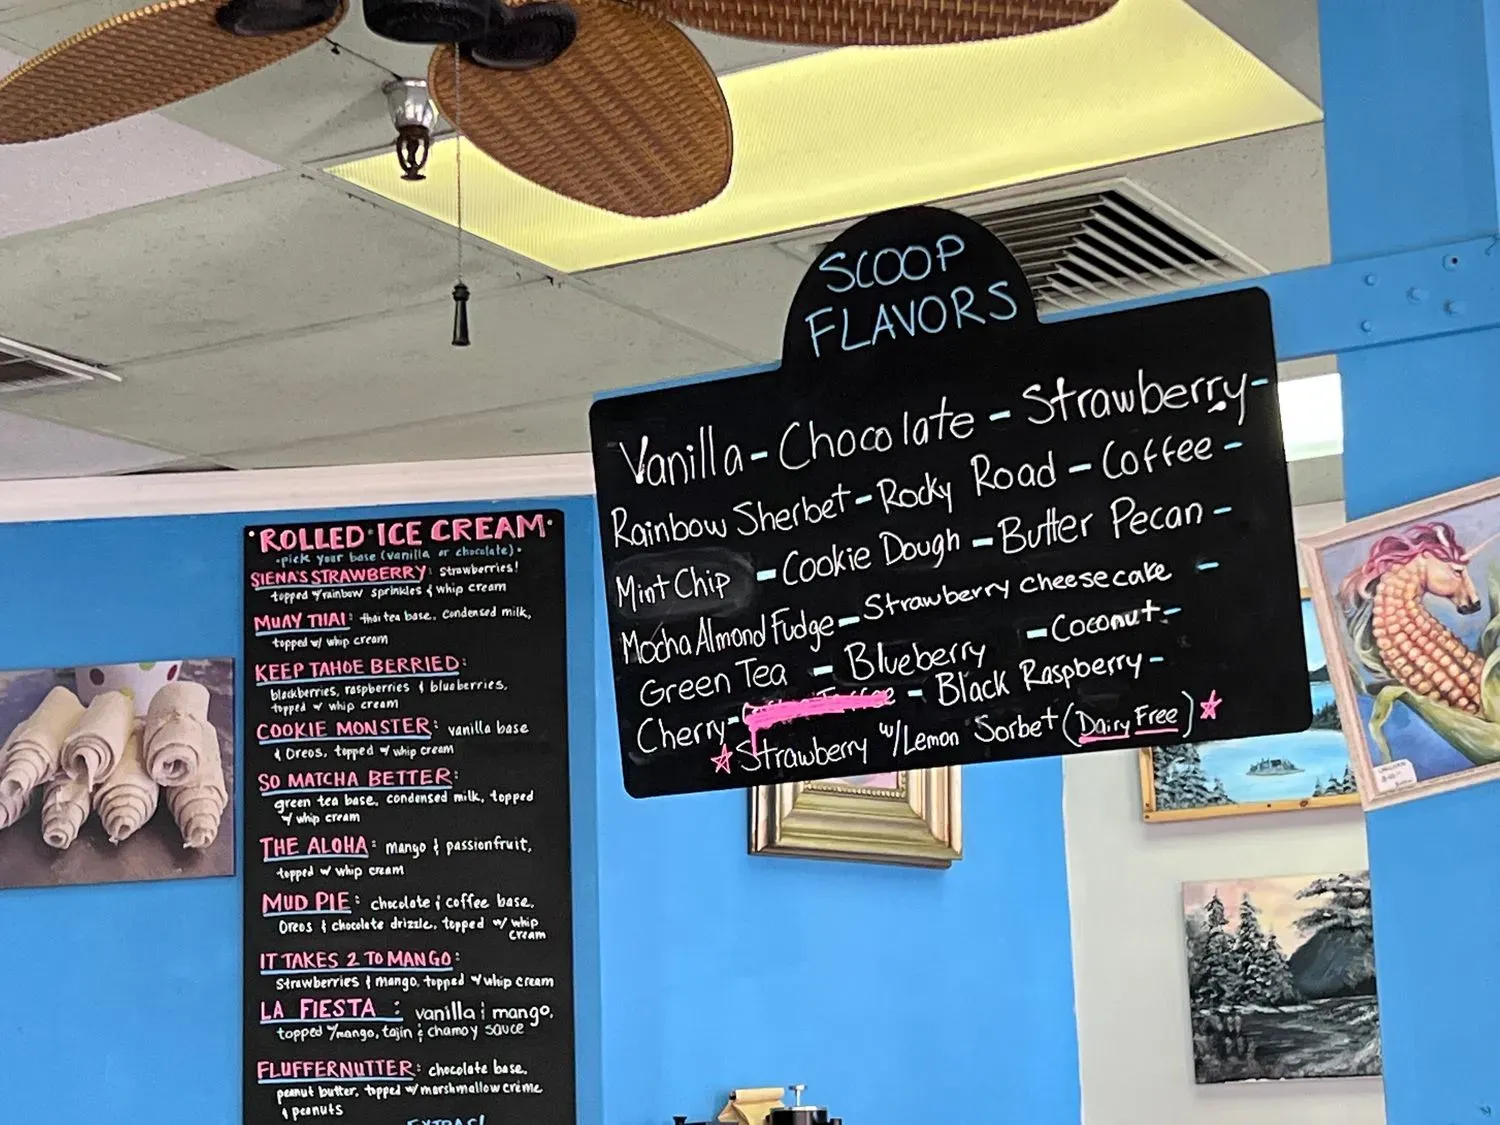 SCOOP
FLAVORS
Vanilla - Chocolate - Strawberry -
Rainbow Sherbet - Rocky Road - Coffee -
Mint Chip - Cookie Dough - Butter Pecan -
Mocha Almond Fudge - Strawberry cheesecake -
Green Tea - Blueberry - Coconut -
Cherry - - Black Raspberry -
☆ Strawberry w/Lemon Sorbet (Dairy Free) ☆
·ROLLED·ICE CREAM·
·pick your base (vanilla or chocolate)·
SIENA'S STRAWBERRY: strawberries!
topped w/rainbow sprinkles & whip cream
MUAY THAI: thai tea base, condensed milk,
topped w/ whip cream
KEEP TAHOE BERRIED:
blackberries, raspberries & blueberries,
topped w/ whip cream
COOKIE MONSTER: vanilla base
& Oreos, topped w/ whip cream
SO MATCHA BETTER:
green tea base, condensed milk, topped
w/ whip cream
THE ALOHA: mango & passionfruit,
topped w/ whip cream
MUD PIE: chocolate & coffee base,
Oreos & chocolate drizzle, topped w/ whip
cream
IT TAKES 2 TO MANGO:
strawberries & mango, topped w/ whip cream
LA FIESTA: vanilla & mango,
topped w/mango, tajin & chamoy sauce
FLUFFERNUTTER: chocolate base,
peanut butter, topped w/ marshmallow crème
& peanuts
EXTRAS!